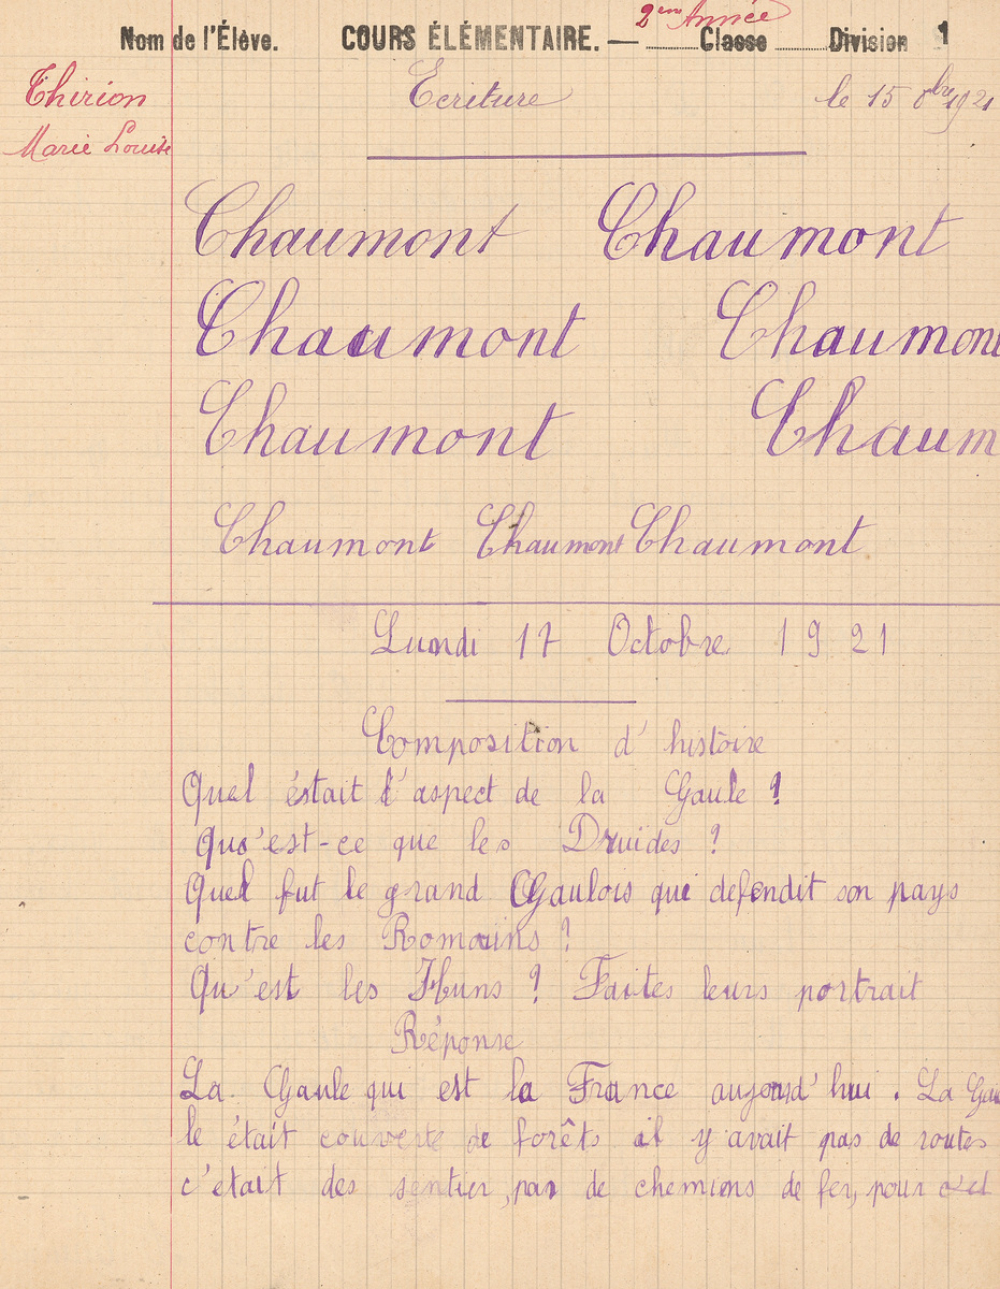 2em Année
Nom de l'Élève. COURS ÉLÉMENTAIRE. — Classe Division 1
Thirion Ecriture le 15 8bre 1921
Marie Louise
Chaumont Chaumont
Chaumont Chaumont
Chaumont Chaum
Chaumont Chaumont Chaumont
Lundi 17 Octobre 1921
Composition d'histoire
Quel éstait l'aspect de la Gaule ?
Qus'est-ce que les Druides ?
Quel fut le grand Gaulois qui defendit son pays
contre les Romains ?
Qu'est les Huns ? Faites leurs portrait
Réponse
La Gaule qui est la France aujourd'hui. La Gau
le était couverte de forêts il y avait pas de routes
c'était des sentier, pas de chemions de fer, pour